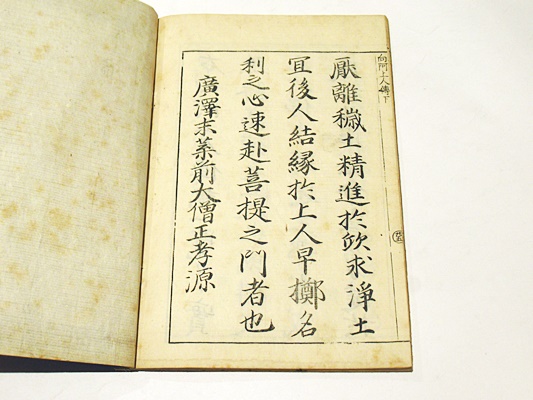 向阿上人傳下
厭離穢土精進於欣求淨土
宜後人結縁於上人早擲名
利之心速赴菩提之門者也
廣澤末葉前大僧正孝源